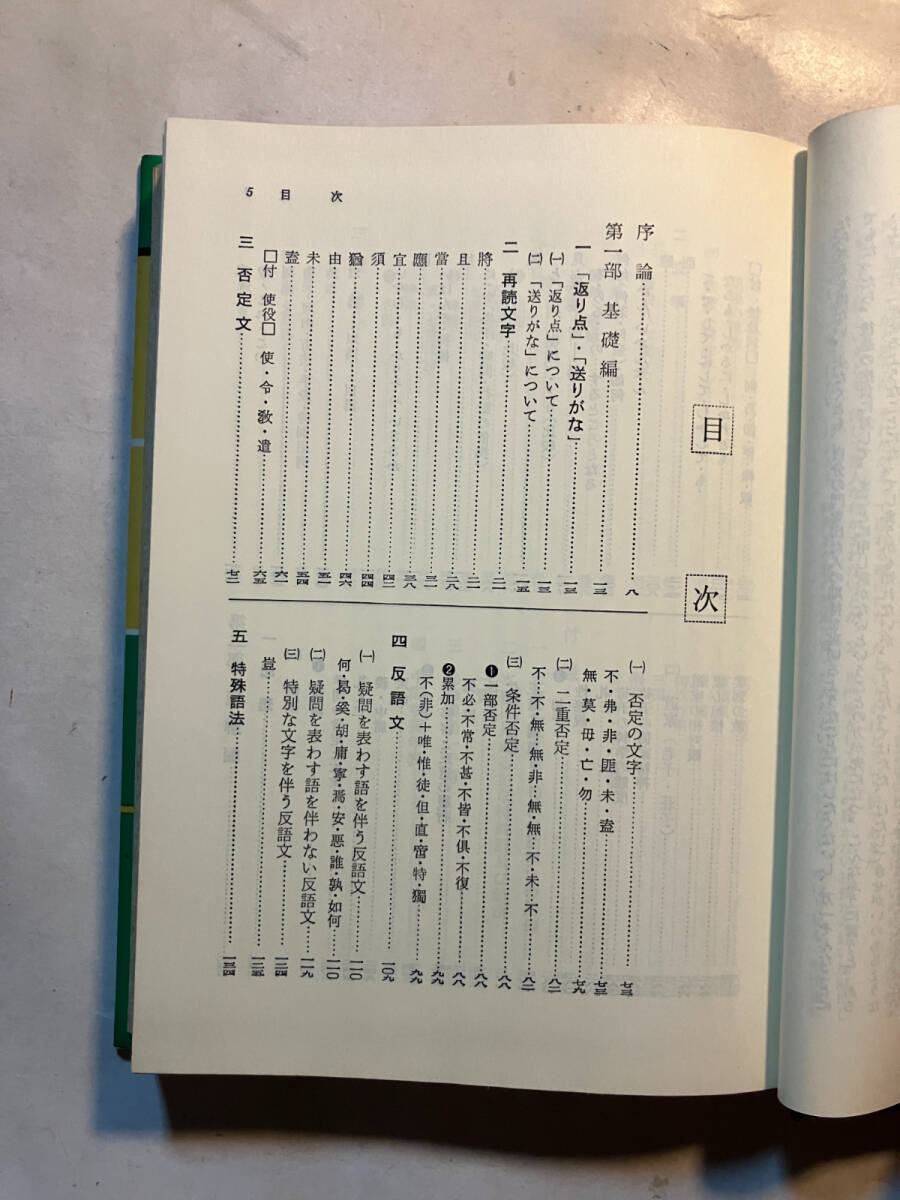 5 目 次
目
次
序論……八
第一部 基礎編……一三
一 「返り点」・「送りがな」……一三
㈠ 「返り点」について……一三
㈡ 「送りがな」について……一五
二 再読文字……二一
將……二一
且……二八
當……三一
應……三八
宜……四二
須……四四
猶……四六
由……五一
未……五四
盍……六一
□付 使役□ 使・令・教・遣……六五
三 否定文……七二
㈠ 否定の文字……七三
不・弗・非・匪・未・盍……七三
無・莫・毋・亡・勿……七九
㈡ 二重否定……八二
不…不・無…無・非…無・無…不・未…不……八二
㈢ 条件否定……八八
❶一部否定……八八
不必・不常・不甚・不皆・不俱・不復……八八
❷累加……九九
不(非)+唯・惟・徒・但・直・啻・特・獨……九九
四 反語文……一〇九
㈠ 疑問を表わす語を伴う反語文……一一〇
何・曷・奚・胡・庸・寧・焉・安・悪・誰・孰・如何……一一〇
㈡ 疑問を表わす語を伴わない反語文……一一九
㈢ 特別な文字を伴う反語文……一二四
豈……一二五
五 特殊語法……一三四